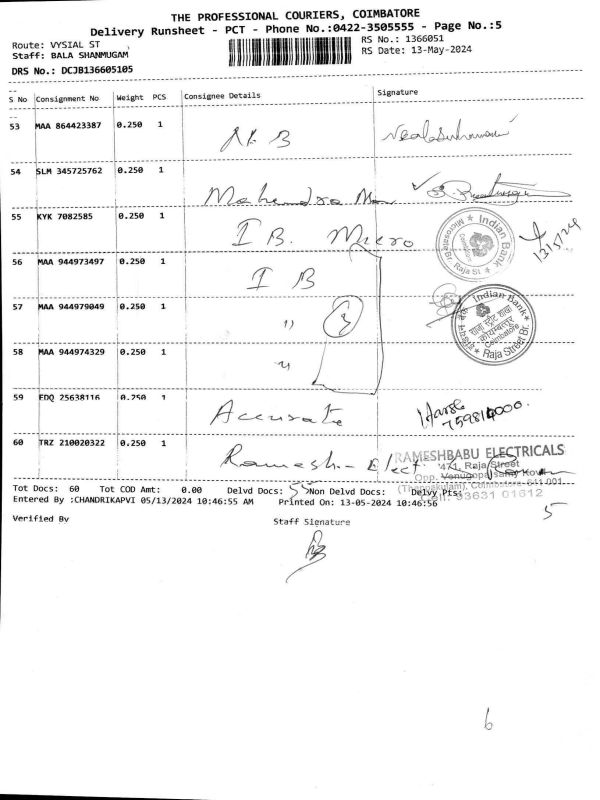 THE PROFESSIONAL COURIERS, COIMBATORE
Delivery Runsheet - PCT - Phone No.:0422-3505555 - Page No.:5
Route: VYSIAL ST
RS No.: 1366051
Staff: BALA SHANMUGAM
RS Date: 13-May-2024
DRS No.: DCJB136605105
S No Consignment No Weight PCS Consignee Details Signature
53 MAA 864423387 0.250 1
54 SLM 345725762 0.250 1 Mahendra
55 KYK 7082585 0.250 1 I B. Micro
Indian Bank
Microsate Br. Raja St
Coimbatore
13/5/24
56 MAA 944973497 0.250 1 I B
57 MAA 944979049 0.250 1 11 3
Indian Bank
राजा स्ट्रीट शाखा
कोयम्बत्तूर
Coimbatore
Raja Street Br.
58 MAA 944974329 0.250 1 "
59 EDQ 25638116 0.250 1 Accurate
60 TRZ 210020322 0.250 1 Ramesh- Elect
RAMESHBABU ELECTRICALS
471, Raja Street
Opp. Venugopalsamy Kovil
(Thermukulam), Coimbatore-641 001
Cell: 93631 01612
Tot Docs: 60 Tot COD Amt: 0.00 Delvd Docs: 55 Non Delvd Docs: Delvy Pts: 5
Entered By :CHANDRIKAPVI 05/13/2024 10:46:55 AM Printed On: 13-05-2024 10:46:56
Verified By
Staff Signature
6